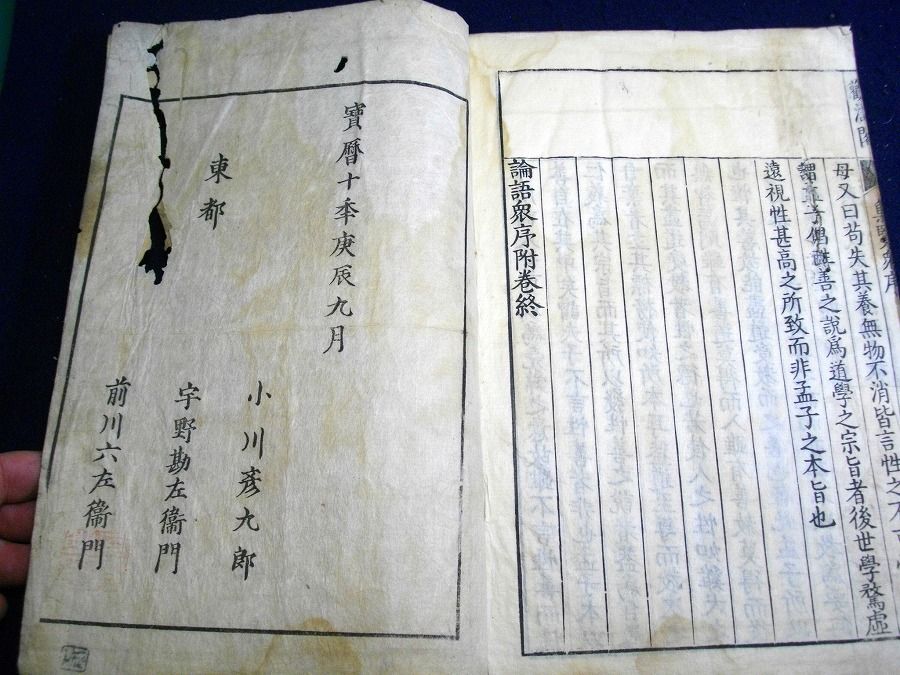 母又曰苟失其養無物不消皆言性之不可
謂孟子倡性善之說爲道學之宗旨者後世學騖虛
遠視性甚高之所致而非孟子之本旨也
論語象序附卷終
寶曆十年庚辰九月
東都
小川彥九郎
宇野勘左衞門
前川六左衞門